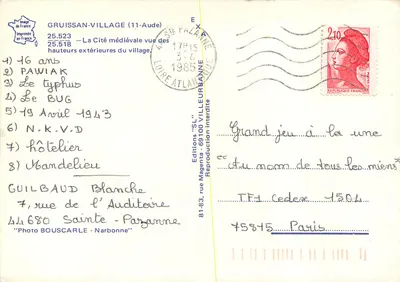 GRUISSAN-VILLAGE (11-Aude)
25.523
25.518 — La Cité médiévale vue des
hauteurs extérieures du village.
1) 16 ans
2) PAWIAK
3) Le typhus
4) Le BUG
5) 19 Avril 1943
6) N.K.V.D
7) hôtelier
8) Mandelieu
GUILBAUD Blanche
7, rue de l'Auditoire
44680 Sainte-Pazanne
"Photo BOUSCARLE - Narbonne"
EX
Editions "SL"
81-83, rue Magenta - 69100 VILLEURBANNE
Reproduction interdite
PAZANNE
17H15
3-6
1985
LOIRE ATLANTIQUE
2,10
Grand jeu à la une
"Au nom de tous les miens"
TF1 Cedex 1504
75815 Paris